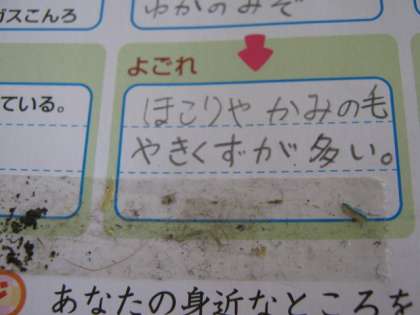 ゆかのみぞ
ガスこんろ
よごれ
ている。
ほこりや かみの毛
やきくずが 多い。
あなたの身近なところを